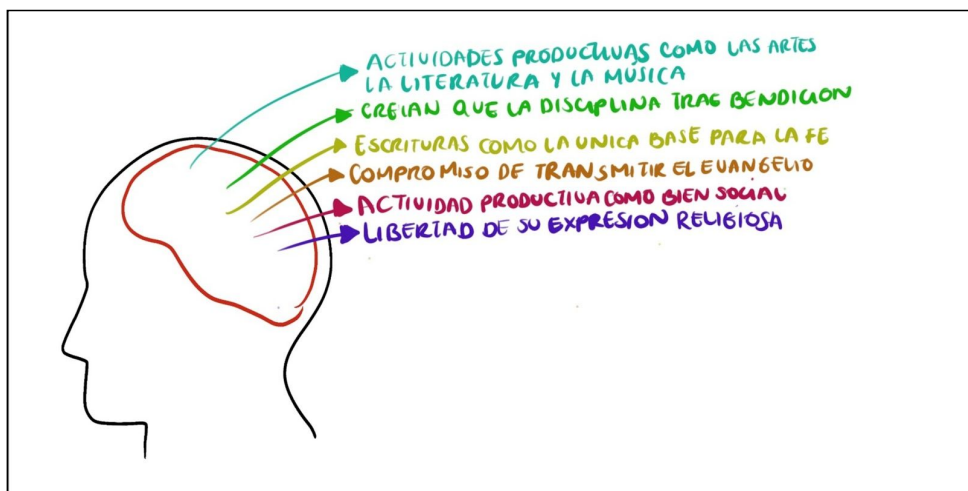 ACTIVIDADES PRODUCTIVAS COMO LAS ARTES
LA LITERATURA Y LA MÚSICA
CREIAN QUE LA DISCIPLINA TRAE BENDICION
ESCRITURAS COMO LA UNICA BASE PARA LA FE
COMPROMISO DE TRANSMITIR EL EVANGELIO
ACTIVIDAD PRODUCTIVA COMO BIEN SOCIAL
LIBERTAD DE SU EXPRESION RELIGIOSA